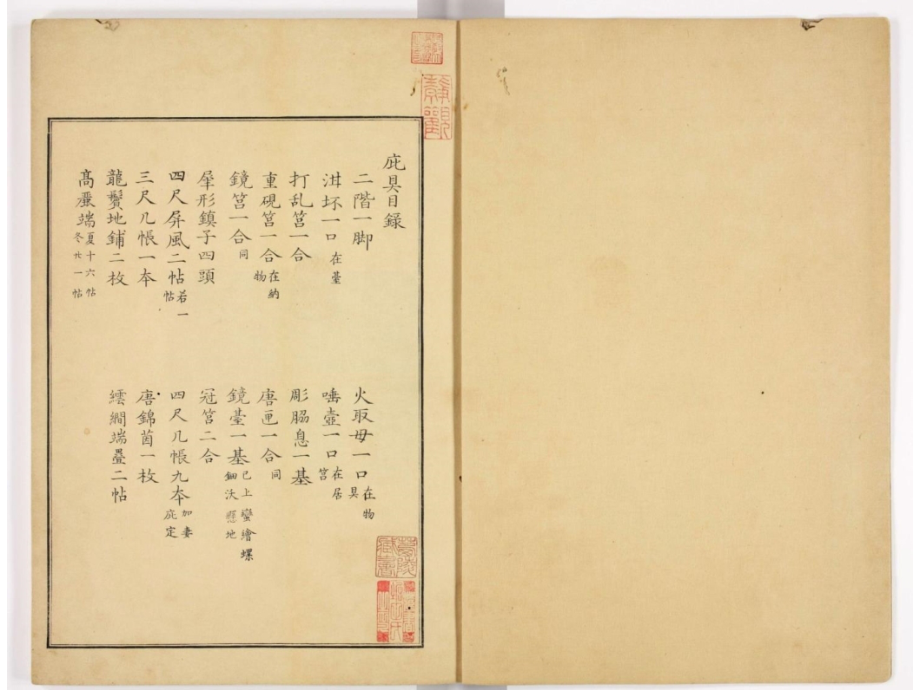 庇具目録
二階一脚　火取母一口在物具
泔坏一口在臺　唾壺一口在居筥
打乱筥一合　彫脇息一基
重硯筥一合在納物　唐匣一合同
鏡筥一合同　鏡臺一基已上蠻繪螺鈿沃懸地
犀形鎮子四頭　冠筥二合
四尺屏風二帖若一帖　四尺几帳九本加妻庇定
三尺几帳一本　唐錦茵一枚
龍鬢地鋪二枚　繧繝端疊二帖
高麗端夏十六帖冬廿一帖